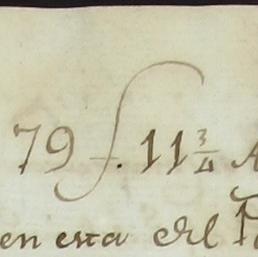 79 f. 11 3/4
en esta del